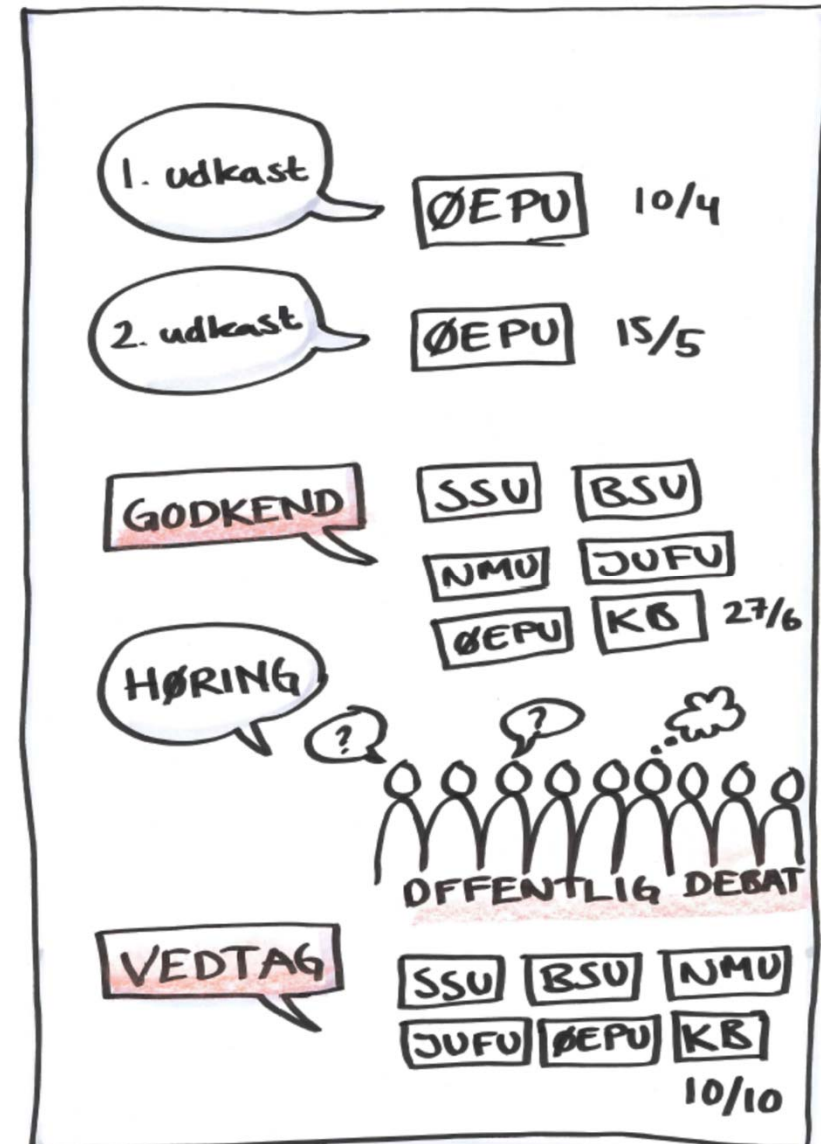 1. udkast
ØEPU 10/4
2. udkast
ØEPU 15/5
GODKEND
SSU BSU
NMU JUFU
ØEPU KB 27/6
HØRING
? ?
OFFENTLIG DEBAT
VEDTAG
SSU BSU NMU
JUFU ØEPU KB
10/10